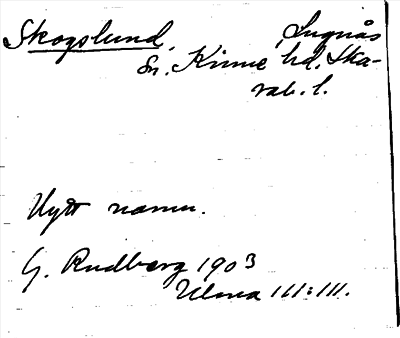 Skogslund, Lugnås
Sn. Kinne hd. Ska-
rab. l.
Nytt namn.
G. Rudberg 1903
Ulma 111:111.